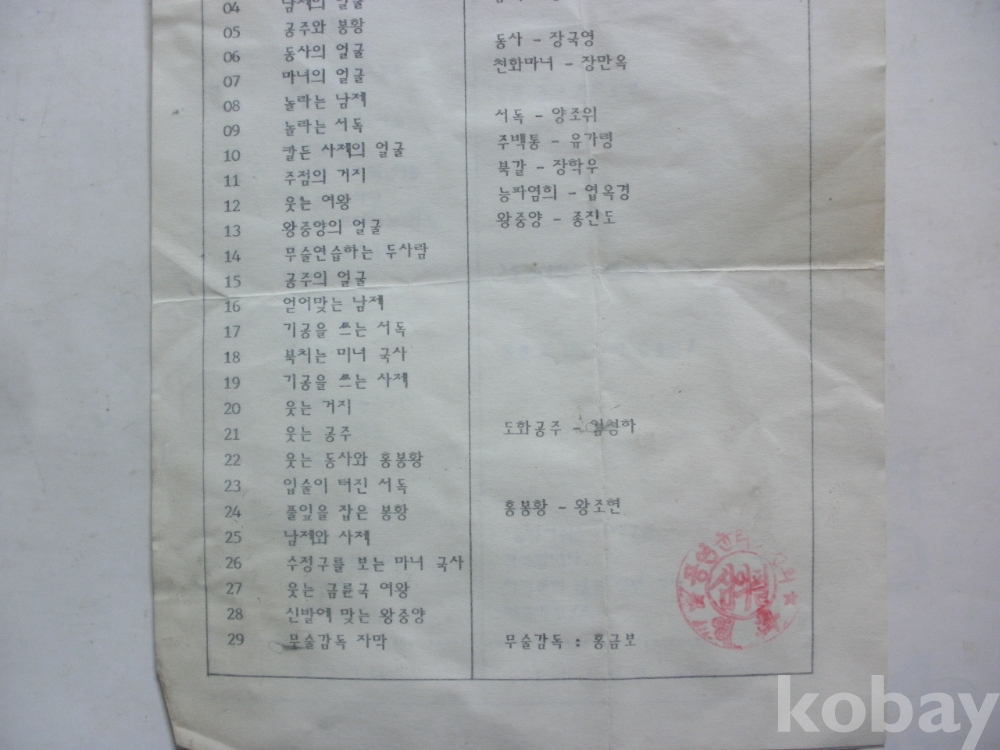 04 남제의 얼굴
05 공주와 봉황
06 동사의 얼굴 동사 - 장국영
07 마녀의 얼굴 천화마녀 - 장만옥
08 놀라는 남제
09 놀라는 서독 서독 - 양조위
10 칼든 사제의 얼굴 주백통 - 유가령
11 주점의 거지 북갈 - 장학우
12 웃는 여왕 능파염희 - 엽옥경
13 왕중양의 얼굴 왕중양 - 종진도
14 무술연습하는 두사람
15 공주의 얼굴
16 얻어맞는 남제
17 기공을 쓰는 서독
18 북치는 미녀 국사
19 기공을 쓰는 사제
20 웃는 거지
21 웃는 공주 도화공주 - 임청하
22 웃는 동사와 홍봉황
23 입술이 터진 서독
24 풀잎을 잡은 봉황 홍봉황 - 왕조현
25 남제와 사제
26 수정구를 보는 마녀 국사
27 웃는 금륜국 여왕
28 신발에 맞는 왕중양
29 무술감독 자막 무술감독 : 홍금보
kobay